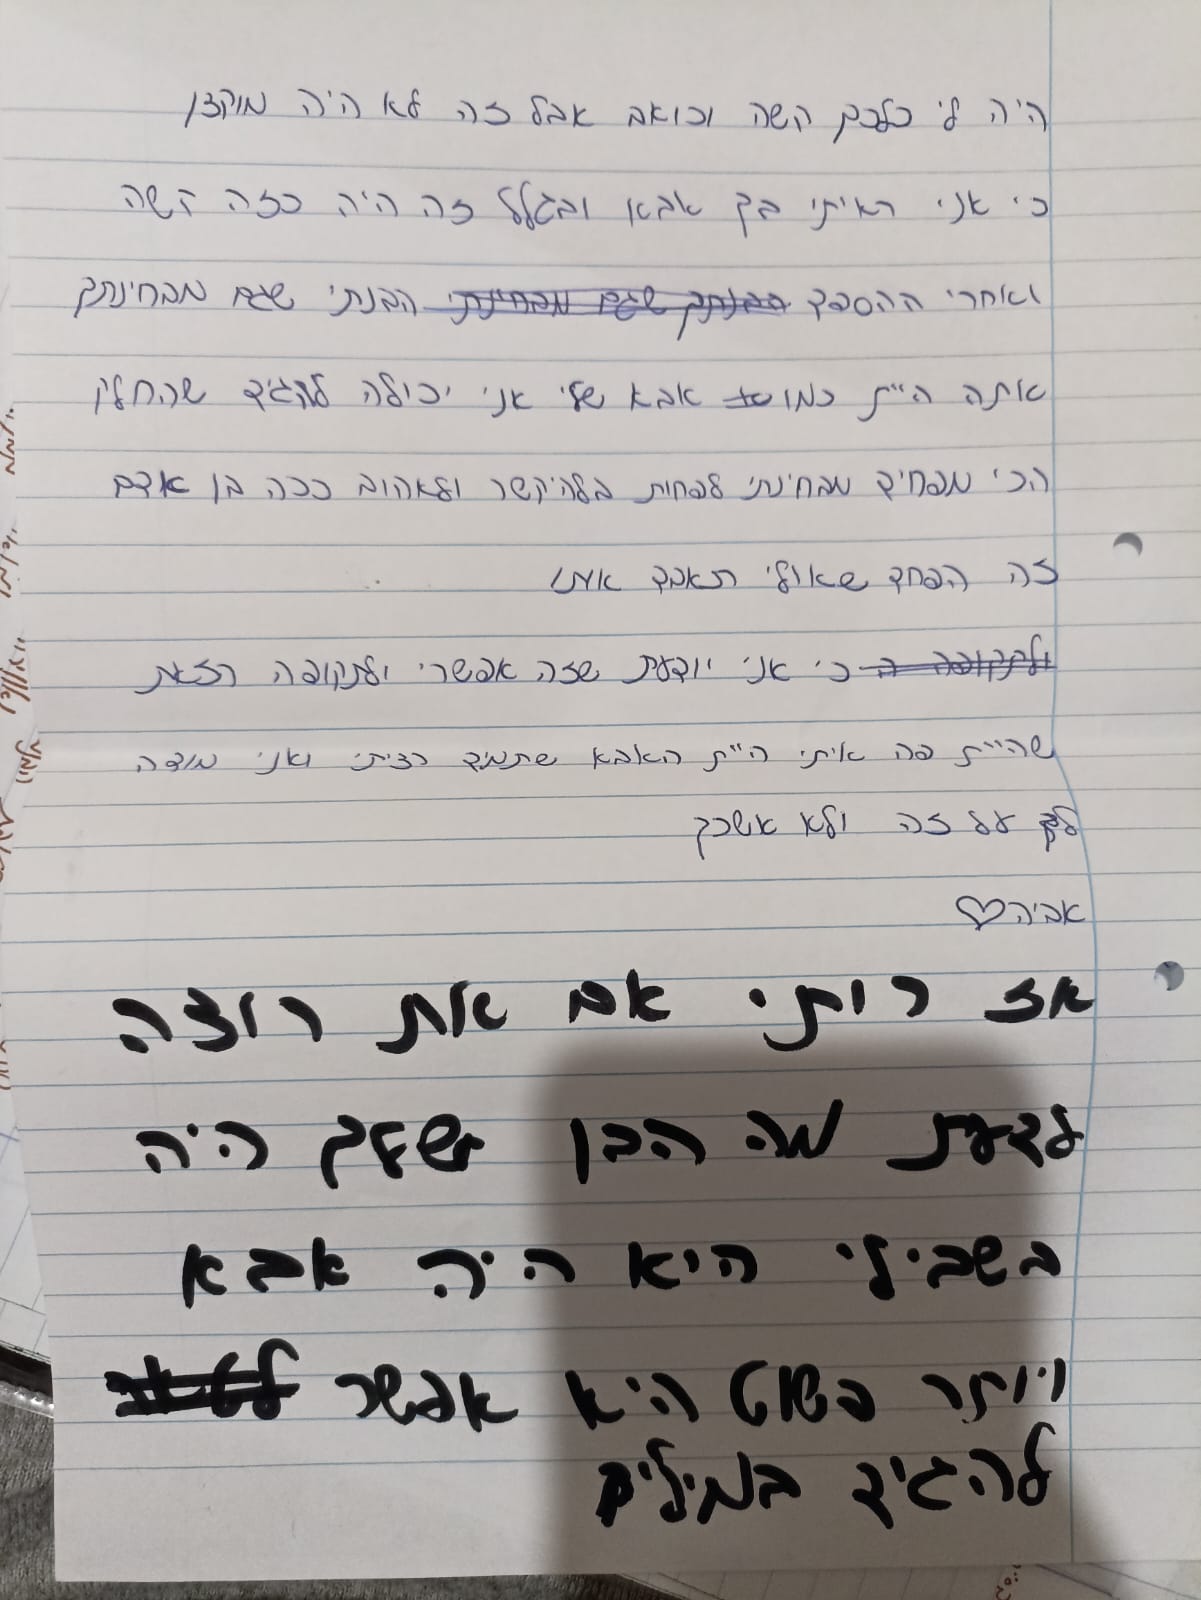 היה לי כלכם קשה וכואב אבל זה לא היה מוקצן
כי אני ראיתי בך אבא ובגלל זה היה כזה קשה
ואחרי ההספד הבנתי שגם מבחינתך
אתה היית כמו אבא שלי אני יכולה להגיד שהחלק
הכי מפחיד מבחינתי לפחות בלהיקשר ולאהוב ככה בן אדם
זה הפחד שאולי תאבד אותו
כי אני יודעת שזה אפשרי ולתקופה הזאת
שהיית פה איתי היית האבא שתמיד רציתי ואני מודה
לך על זה ולא אשכך
אביה♡
אז רותי אם את רוצה
לדעת מה הבן שלך היה
בשבילי היא היה אבא
ויותר פשוט היא אפשר
להגיד במילים